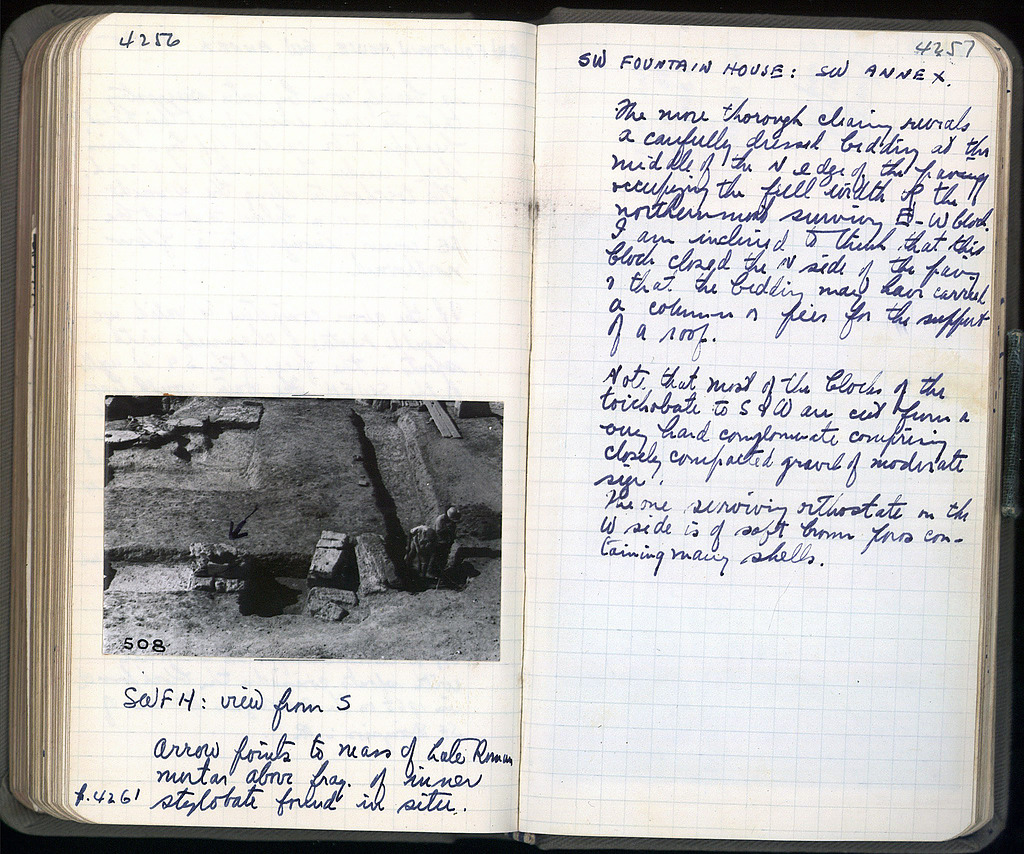 4256
508
SWFH: view from S
Arrow points to mass of Late Roman
mortar above frag. of inner
p.4261 stylobate found in situ.
4257
SW FOUNTAIN HOUSE: SW ANNEX.
The more thorough cleaning reveals
a carefully dressed bedding at the
middle of the N edge of the paving
occupying the full width of the
northernmost surviving E-W block.
I am inclined to think that this
block closed the N side of the paving
& that the bedding may have carried
a column or pier for the support
of a roof.
Note that most of the blocks of the
toichobate to S & W are cut from a
very hard conglomerate comprising
closely compacted gravel of moderate
size.
The one surviving orthostate on the
W side is of soft brown poros con-
taining many shells.